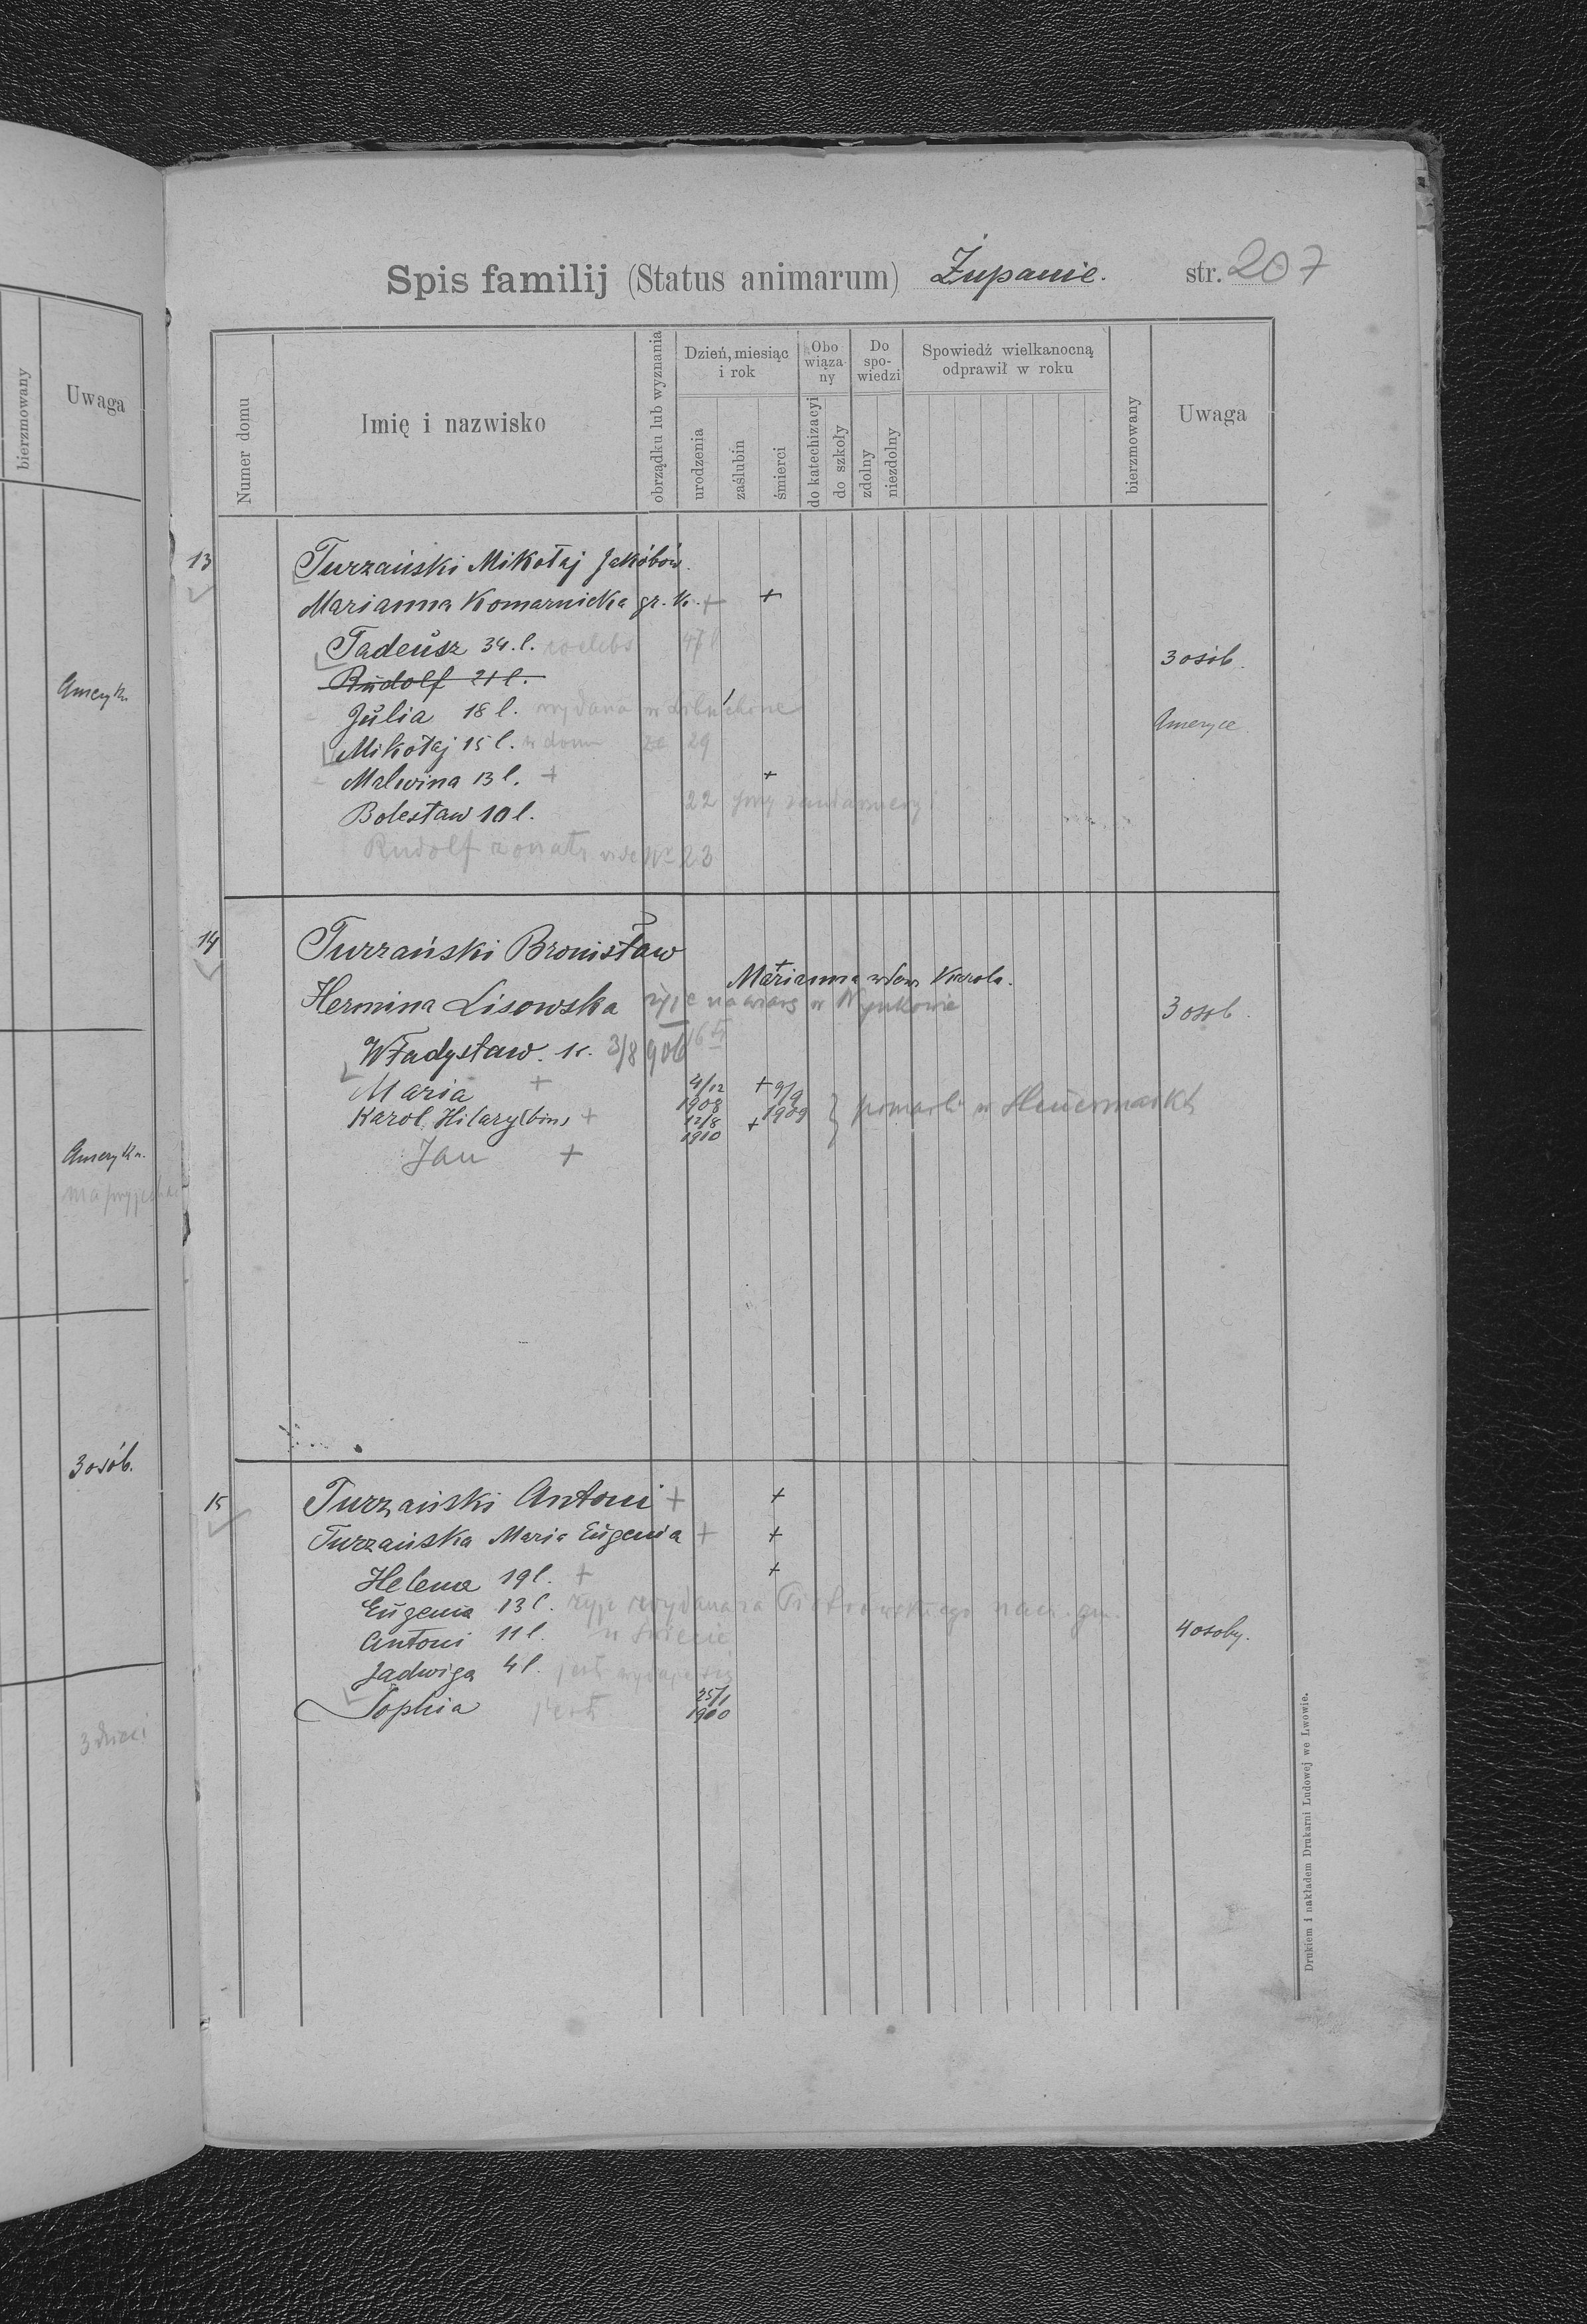 bierzmowany
Uwaga
Ameryk.
3 osób.
3 dzieci
Spis familij (Status animarum) Żupanie. str. 207
Numer domu
Imię i nazwisko
obrządku lub wyznania
Dzień, miesiąc i rok
urodzenia
zaślubin
śmierci
Obowiązany
do katechizacyi
do szkoły
Do spowiedzi
zdolny
niezdolny
Spowiedź wielkanocną odprawił w roku
bierzmowany
Uwaga
13 Turzański Mikołaj Jakóbów.
Marianna Komarnicka gr. k. + +
Tadeusz 34. l. coelebs 47 l 3 osób.
Rudolf 21 l.
Julia 18 l. wydana w Ameryce
Mikołaj 15 l. w domu 29
Malwina 13 l. + +
Bolesław 10 l. 22
Rudolf żonaty vide Nr 23
14 Turzański Bronisław
+
Marianna wdow. Karola.
Hermina Lisowska żyje 3 osob.
Władysław. 3/8 906
Maria + 4/12 1908 + 9/9 1909
Karol Hilary + 12/8 1910 + } pomarli w
Jan +
15 Turzański Antoni + +
Turzańska Maria Eugenia + +
Helena 19 l. + +
Eugenia 13 l. żyje wydana za Piotrowskiego nacz. gm.
Antoni 11 l. w świecie 4 osoby.
Jadwiga 4 l. jest
Sophia jest 25/1 1900
Drukiem i nakładem Drukarni Ludowej we Lwowie.